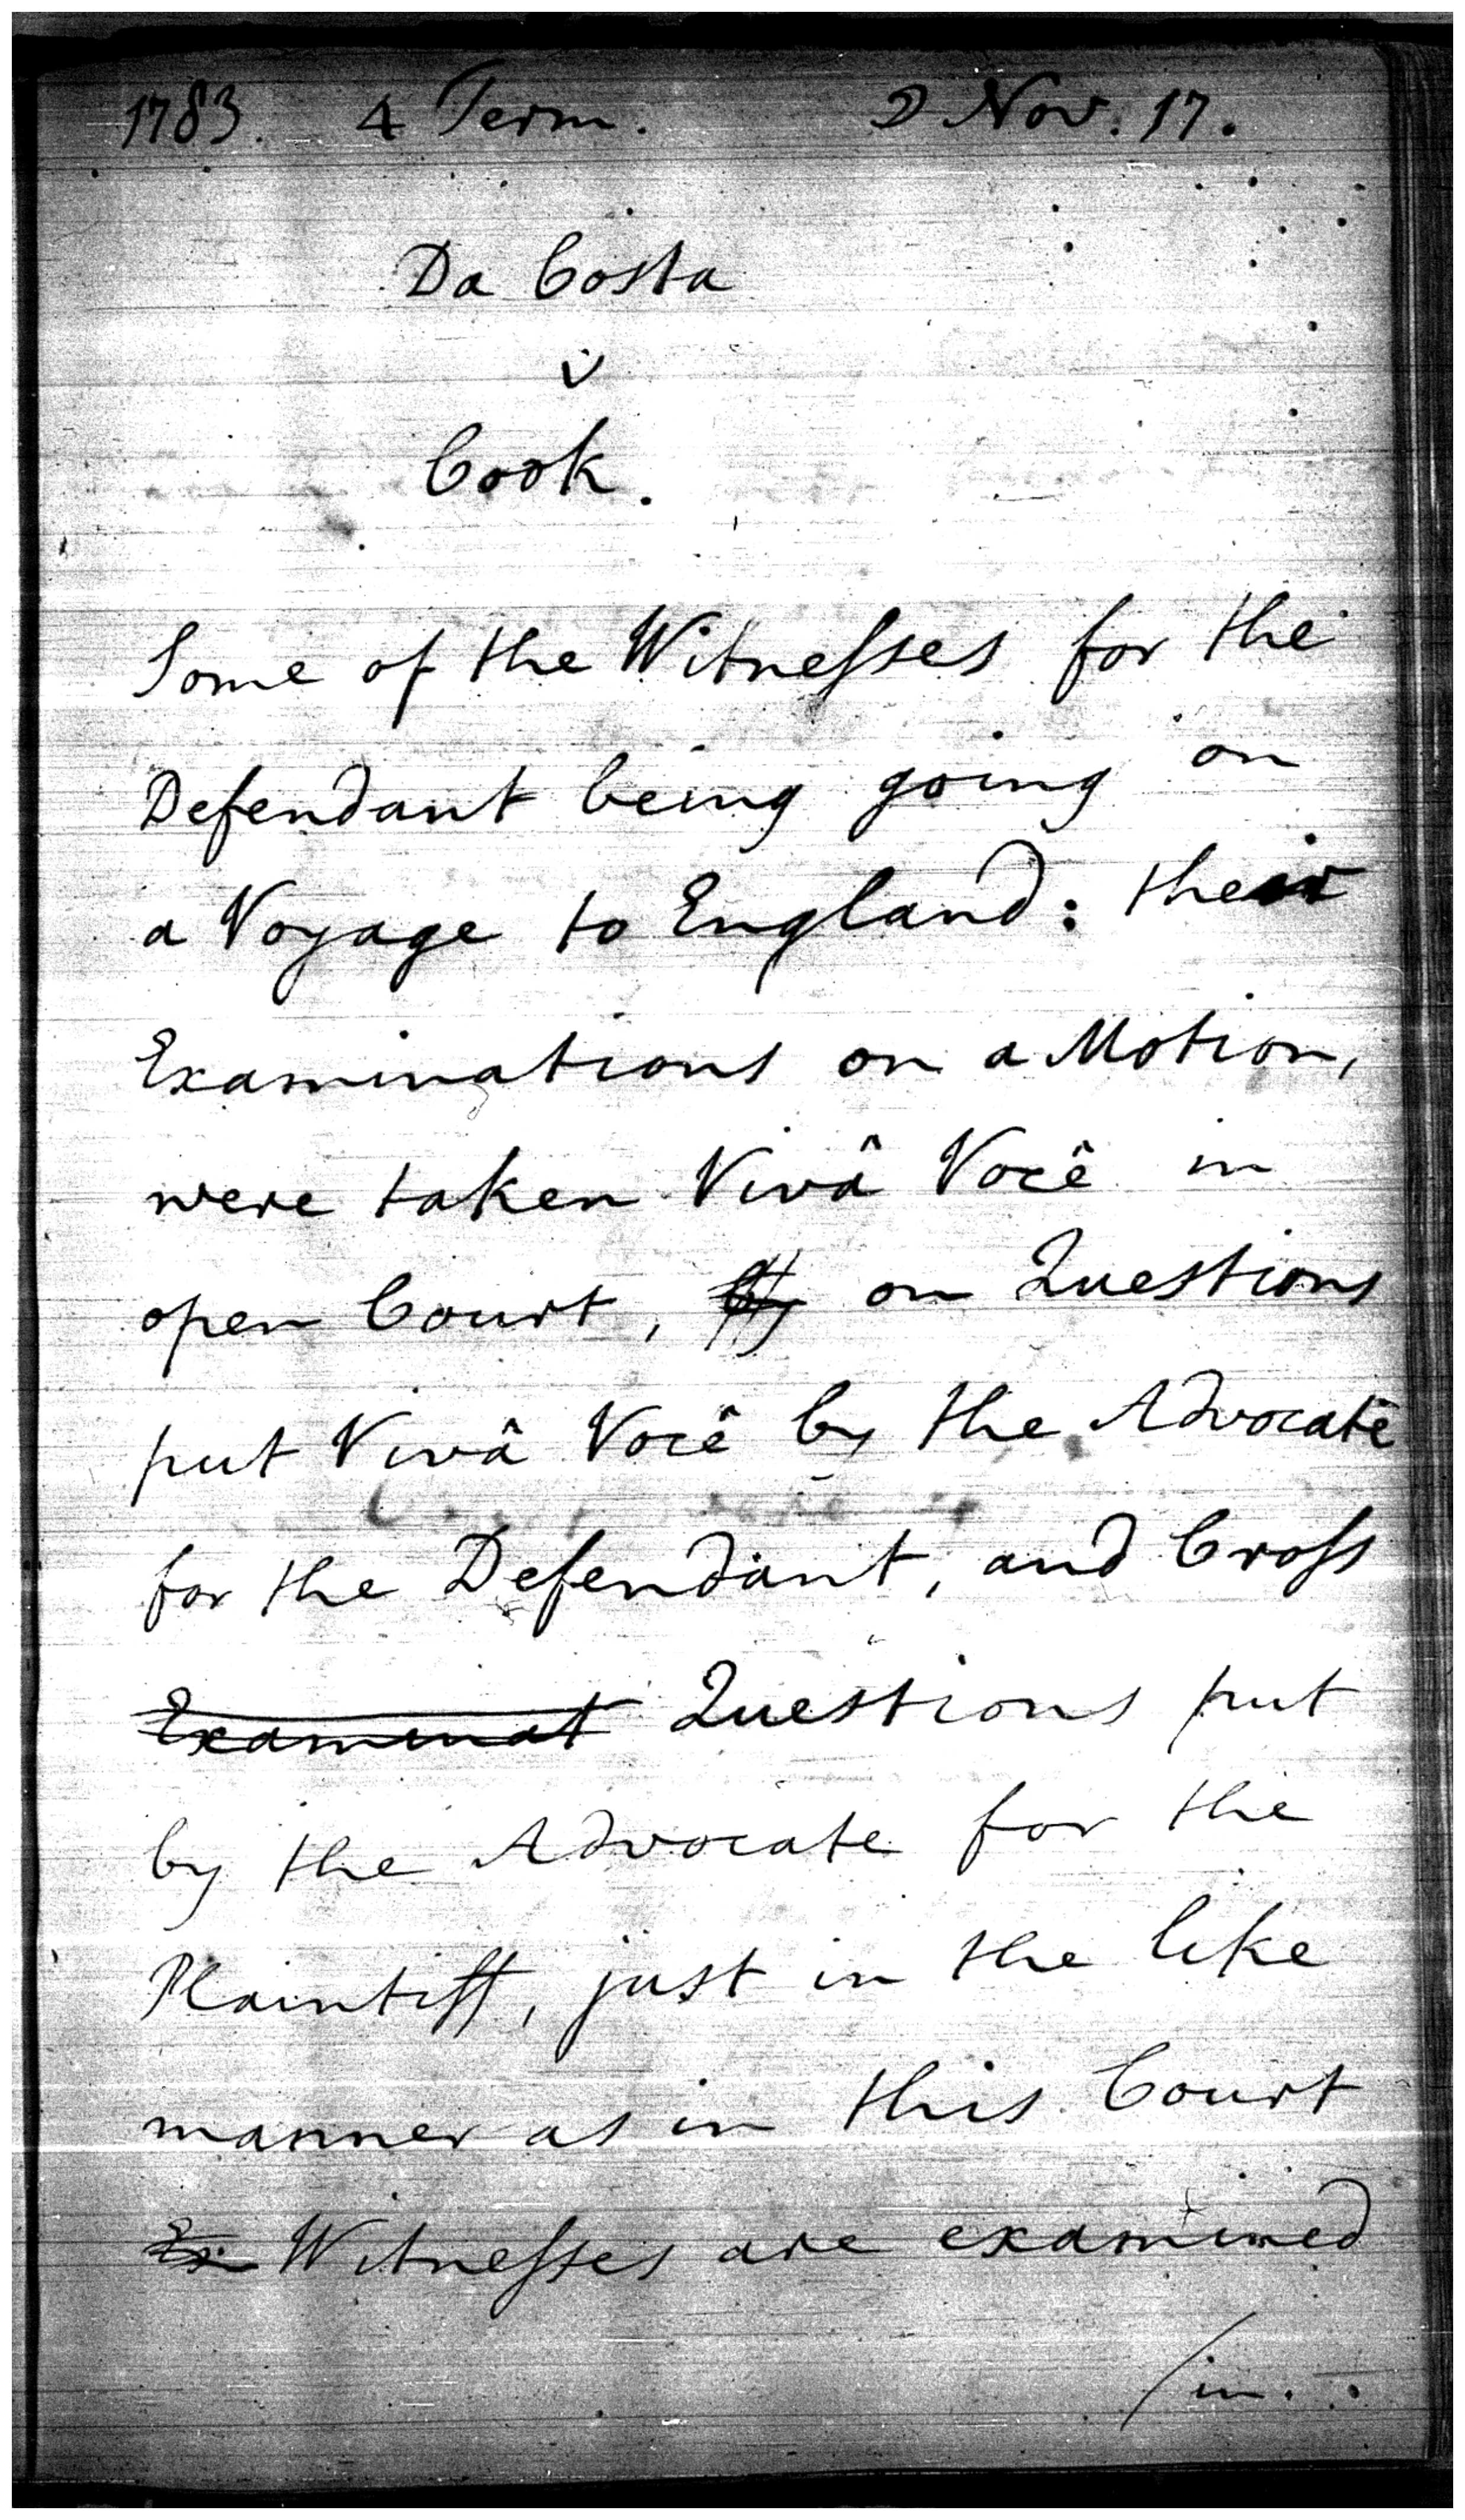 1783. 4 Term. ☽ Nov. 17.
Da Costa
v
Cook.
Some of the Witnesses for the
Defendant being going on
a Voyage to England: their
Examinations on a Motion,
were taken Vivâ Você in
open Court, by on Questions
put Vivâ Você by the Advocate
for the Defendant, and Cross
Examinat Questions put
by the Advocate for the
Plaintiff, just in the like
manner as in this Court
Ex Witnesses are examined
/in.